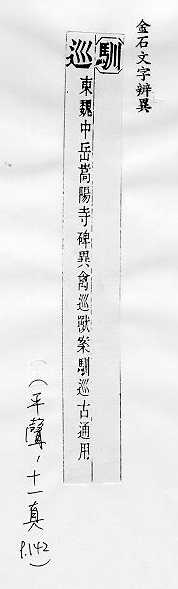 金石文字辨異
馴
巡
東魏中岳嵩陽寺碑異禽巡獸案馴巡古通用
(平聲、十一真 P.142)